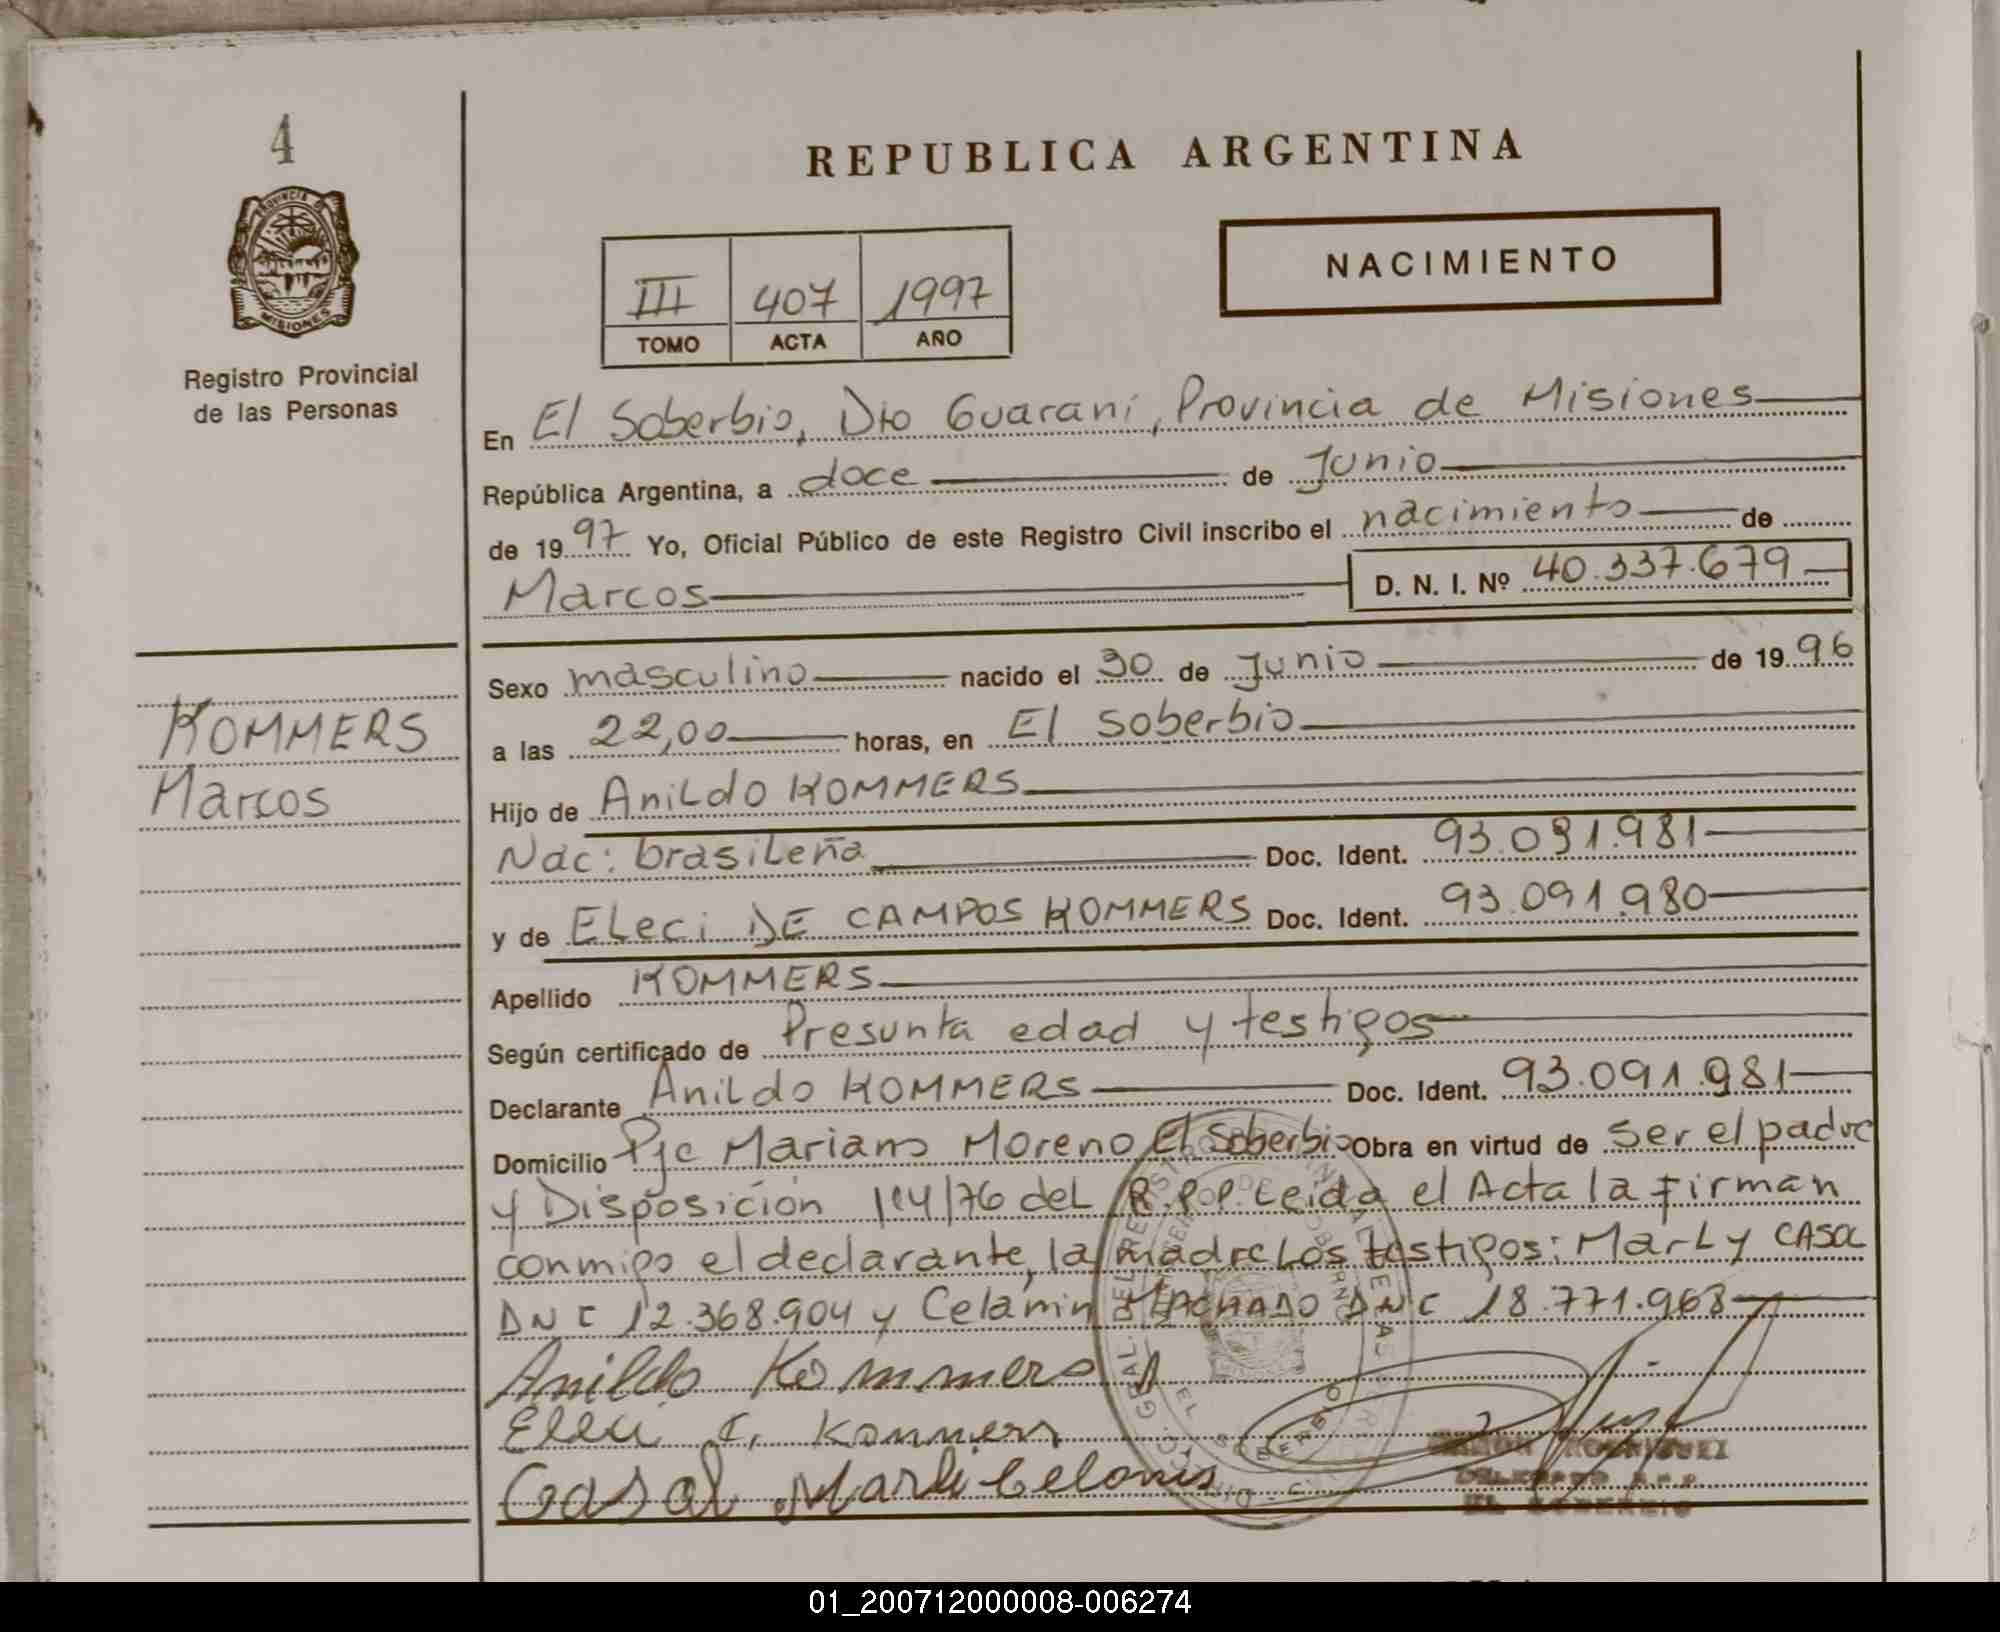 4
PROVINCIA DE
MISIONES
Registro Provincial
de las Personas
REPUBLICA ARGENTINA
III 407 1997
TOMO ACTA AÑO
NACIMIENTO
En El Soberbio, Dto Guaraní, Provincia de Misiones
República Argentina, a doce de Junio
de 1997 Yo, Oficial Público de este Registro Civil inscribo el nacimiento de
Marcos D. N. I. Nº 40.337.679
KOMMERS
Marcos
Sexo masculino nacido el 30 de Junio de 1996
a las 22,00 horas, en El Soberbio
Hijo de Anildo KOMMERS
Nac: brasileña Doc. Ident. 93.091.981
y de Eleci DE CAMPOS KOMMERS Doc. Ident. 93.091.980
Apellido KOMMERS
Según certificado de Presunta edad y testigos
Declarante Anildo KOMMERS Doc. Ident. 93.091.981
Domicilio Pje Mariano Moreno, El Soberbio Obra en virtud de ser el padre
y Disposición 114/76 del R.P.P. Leida el Acta la firman
conmigo el declarante, la madre Los testigos: Marly CASOL
DNI 12.368.904 y Celanin MACHADO DNI 18.771.968
Anildo Kommers
Eleci C. Kommers
Casol Marli Celanis
EL SOBERBIO
RAMON RODRIGUEZ
DELEGADO R.P.P.
EL SOBERBIO
01_200712000008-006274